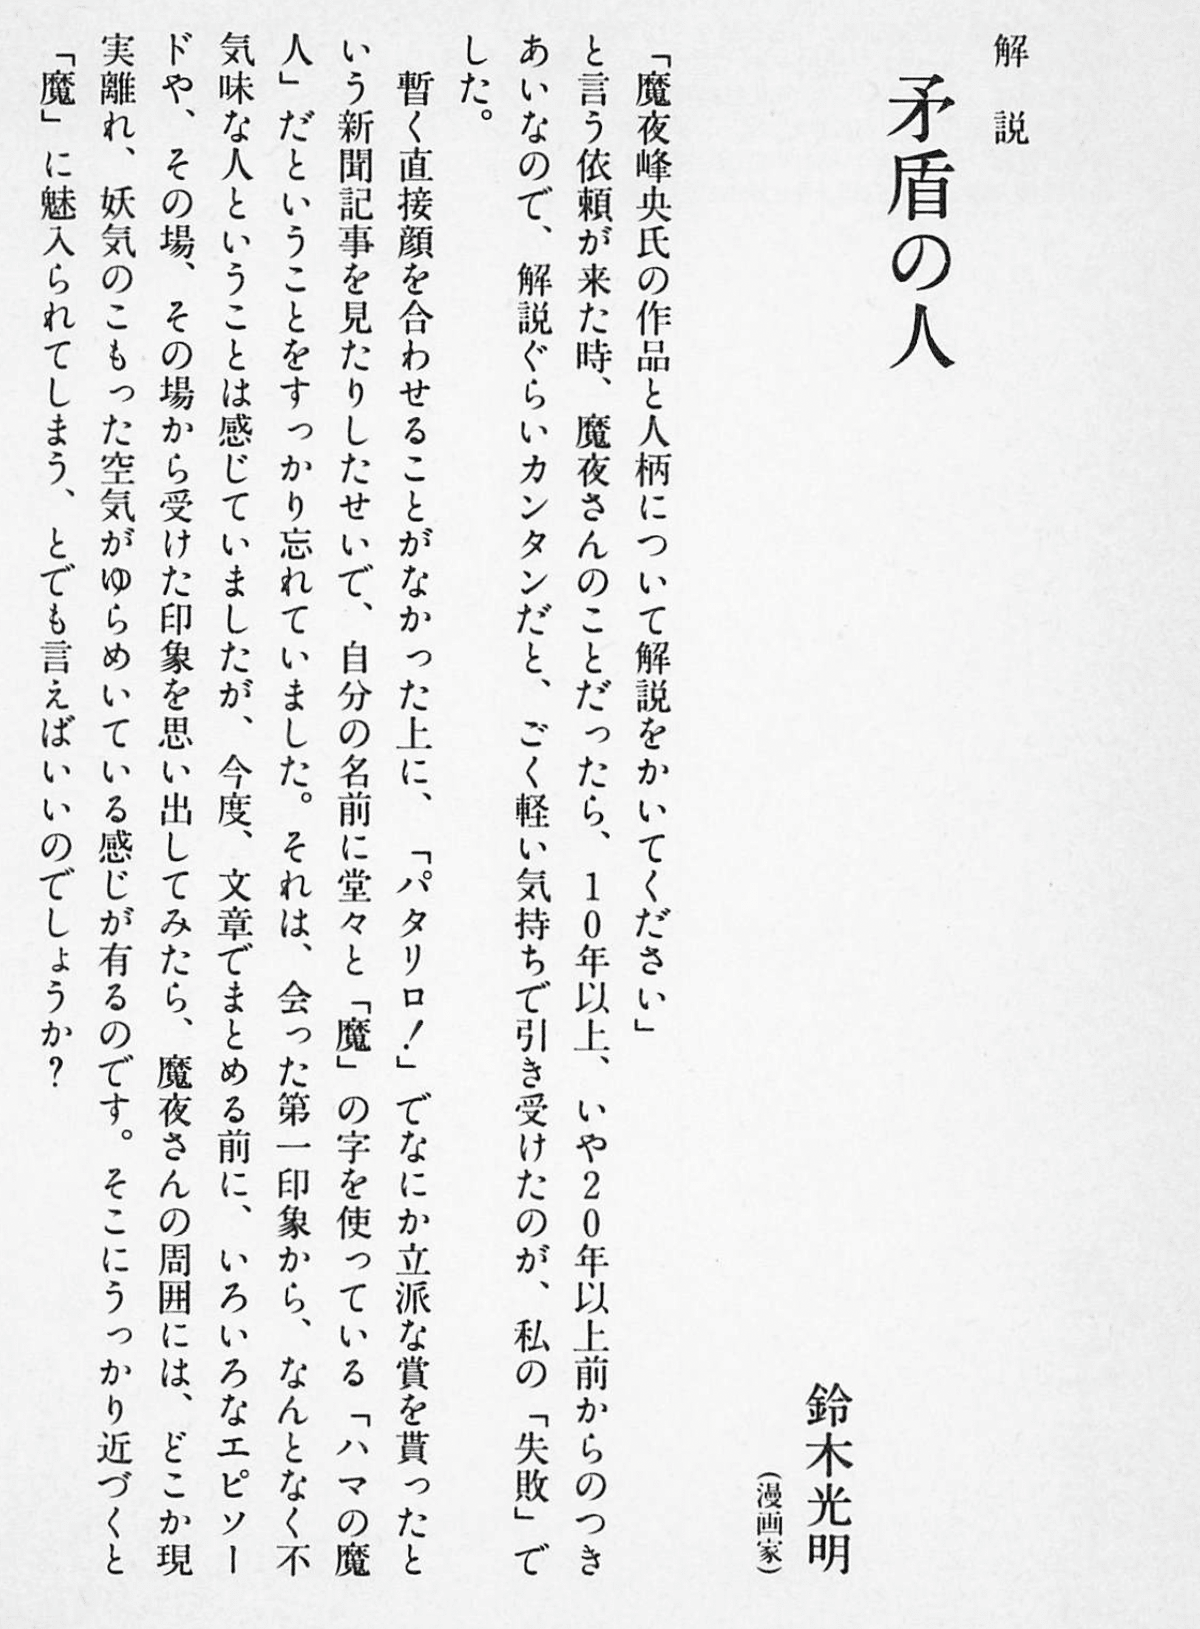 解説
矛盾の人
鈴木光明
（漫画家）
「魔夜峰央氏の作品と人柄について解説をかいてください」
と言う依頼が来た時、魔夜さんのことだったら、10年以上、いや20年以上前からのつき
あいなので、解説ぐらいカンタンだと、ごく軽い気持ちで引き受けたのが、私の「失敗」で
した。
暫く直接顔を合わせることがなかった上に、「パタリロ！」でなにか立派な賞を貰ったと
いう新聞記事を見たりしたせいで、自分の名前に堂々と「魔」の字を使っている「ハマの魔
人」だということをすっかり忘れていました。それは、会った第一印象から、なんとなく不
気味な人ということは感じていましたが、今度、文章でまとめる前に、いろいろなエピソー
ドや、その場、その場から受けた印象を思い出してみたら、魔夜さんの周囲には、どこか現
実離れ、妖気のこもった空気がゆらめいている感じが有るのです。そこにうっかり近づくと
「魔」に魅入られてしまう、とでも言えばいいのでしょうか？